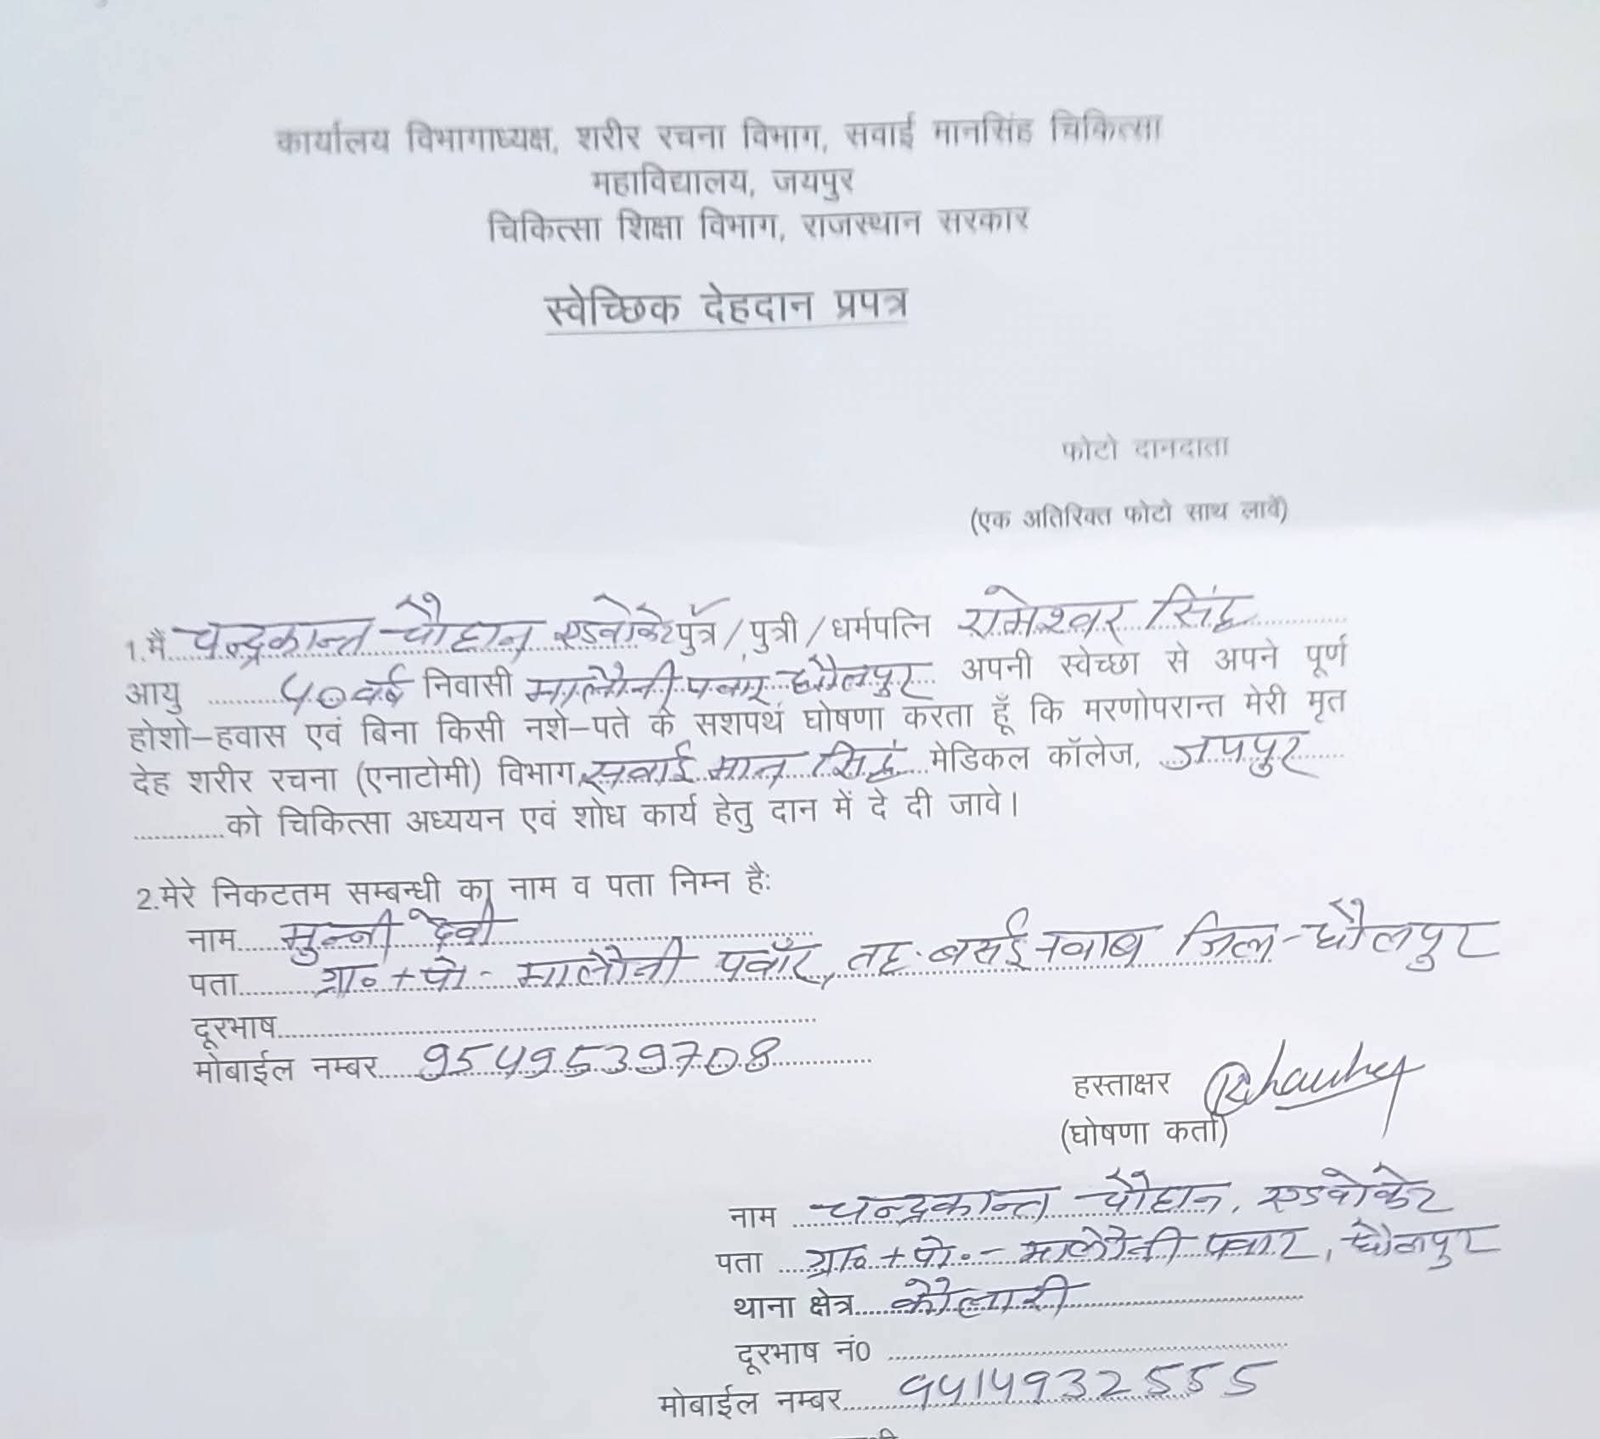 कार्यालय विभागाध्यक्ष, शरीर रचना विभाग, सवाई मानसिंह चिकित्सा
महाविद्यालय, जयपुर
चिकित्सा शिक्षा विभाग, राजस्थान सरकार
स्वेच्छिक देहदान प्रपत्र
फोटो दानदाता
(एक अतिरिक्त फोटो साथ लावें)
1.मैं चन्द्रकान्त चौहान एडवोकेट पुत्र/पुत्री/धर्मपत्नि रामेश्वर सिंह
आयु ५० वर्ष निवासी मालौनी पवांर धौलपुर अपनी स्वेच्छा से अपने पूर्ण
होशो-हवास एवं बिना किसी नशे-पते के सशपथ घोषणा करता हूँ कि मरणोपरान्त मेरी मृत
देह शरीर रचना (एनाटोमी) विभाग सवाई मान सिंह मेडिकल कॉलेज, जयपुर
को चिकित्सा अध्ययन एवं शोध कार्य हेतु दान में दे दी जावे।
2.मेरे निकटतम सम्बन्धी का नाम व पता निम्न है:
नाम मुन्नी देवी
पता ग्रा० + पो - मालौनी पवाँर, तह. बसई नवाब जिला - धौलपुर
दूरभाष
मोबाईल नम्बर 9549539708
हस्ताक्षर
(घोषणा कर्ता)
नाम चन्द्रकान्त चौहान, एडवोकेट
पता ग्रा० + पो. - मालौनी पवार, धौलपुर
थाना क्षेत्र कौलारी
दूरभाष नं0
मोबाईल नम्बर 9414932555